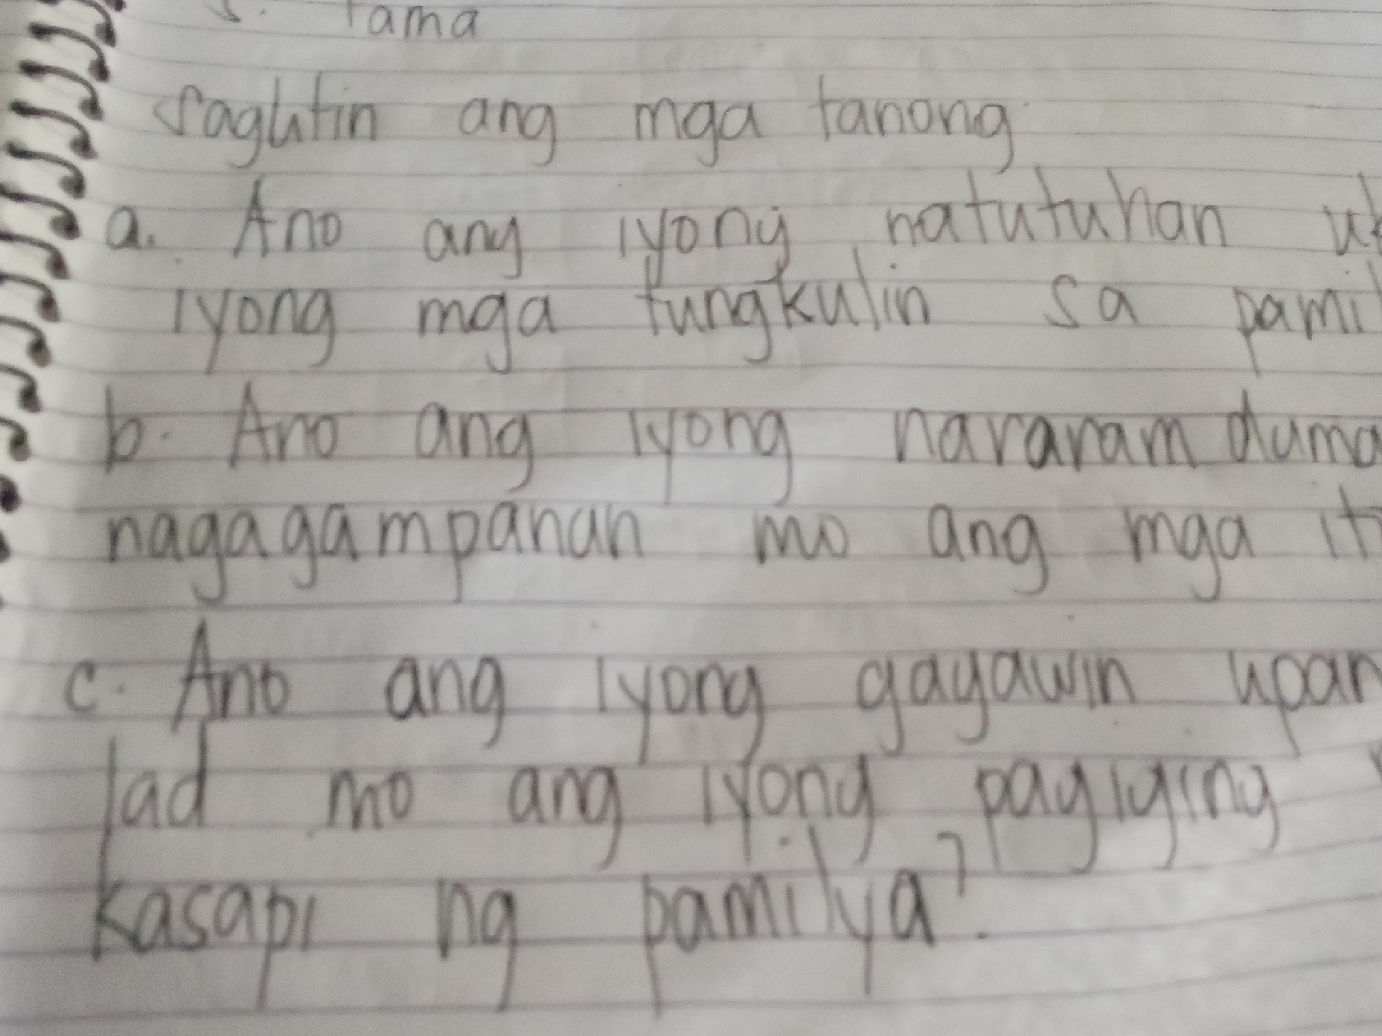 5. Tama
Sagutin ang mga tanong
a. Ano ang iyong natutuhan
iyong mga tungkulin sa pami
b. Ano ang iyong nararamduma
nagagampanan mo ang mga it
c. Ano ang iyong gagawin upan
lad mo ang iyong pagiging
kasapi ng pamilya?